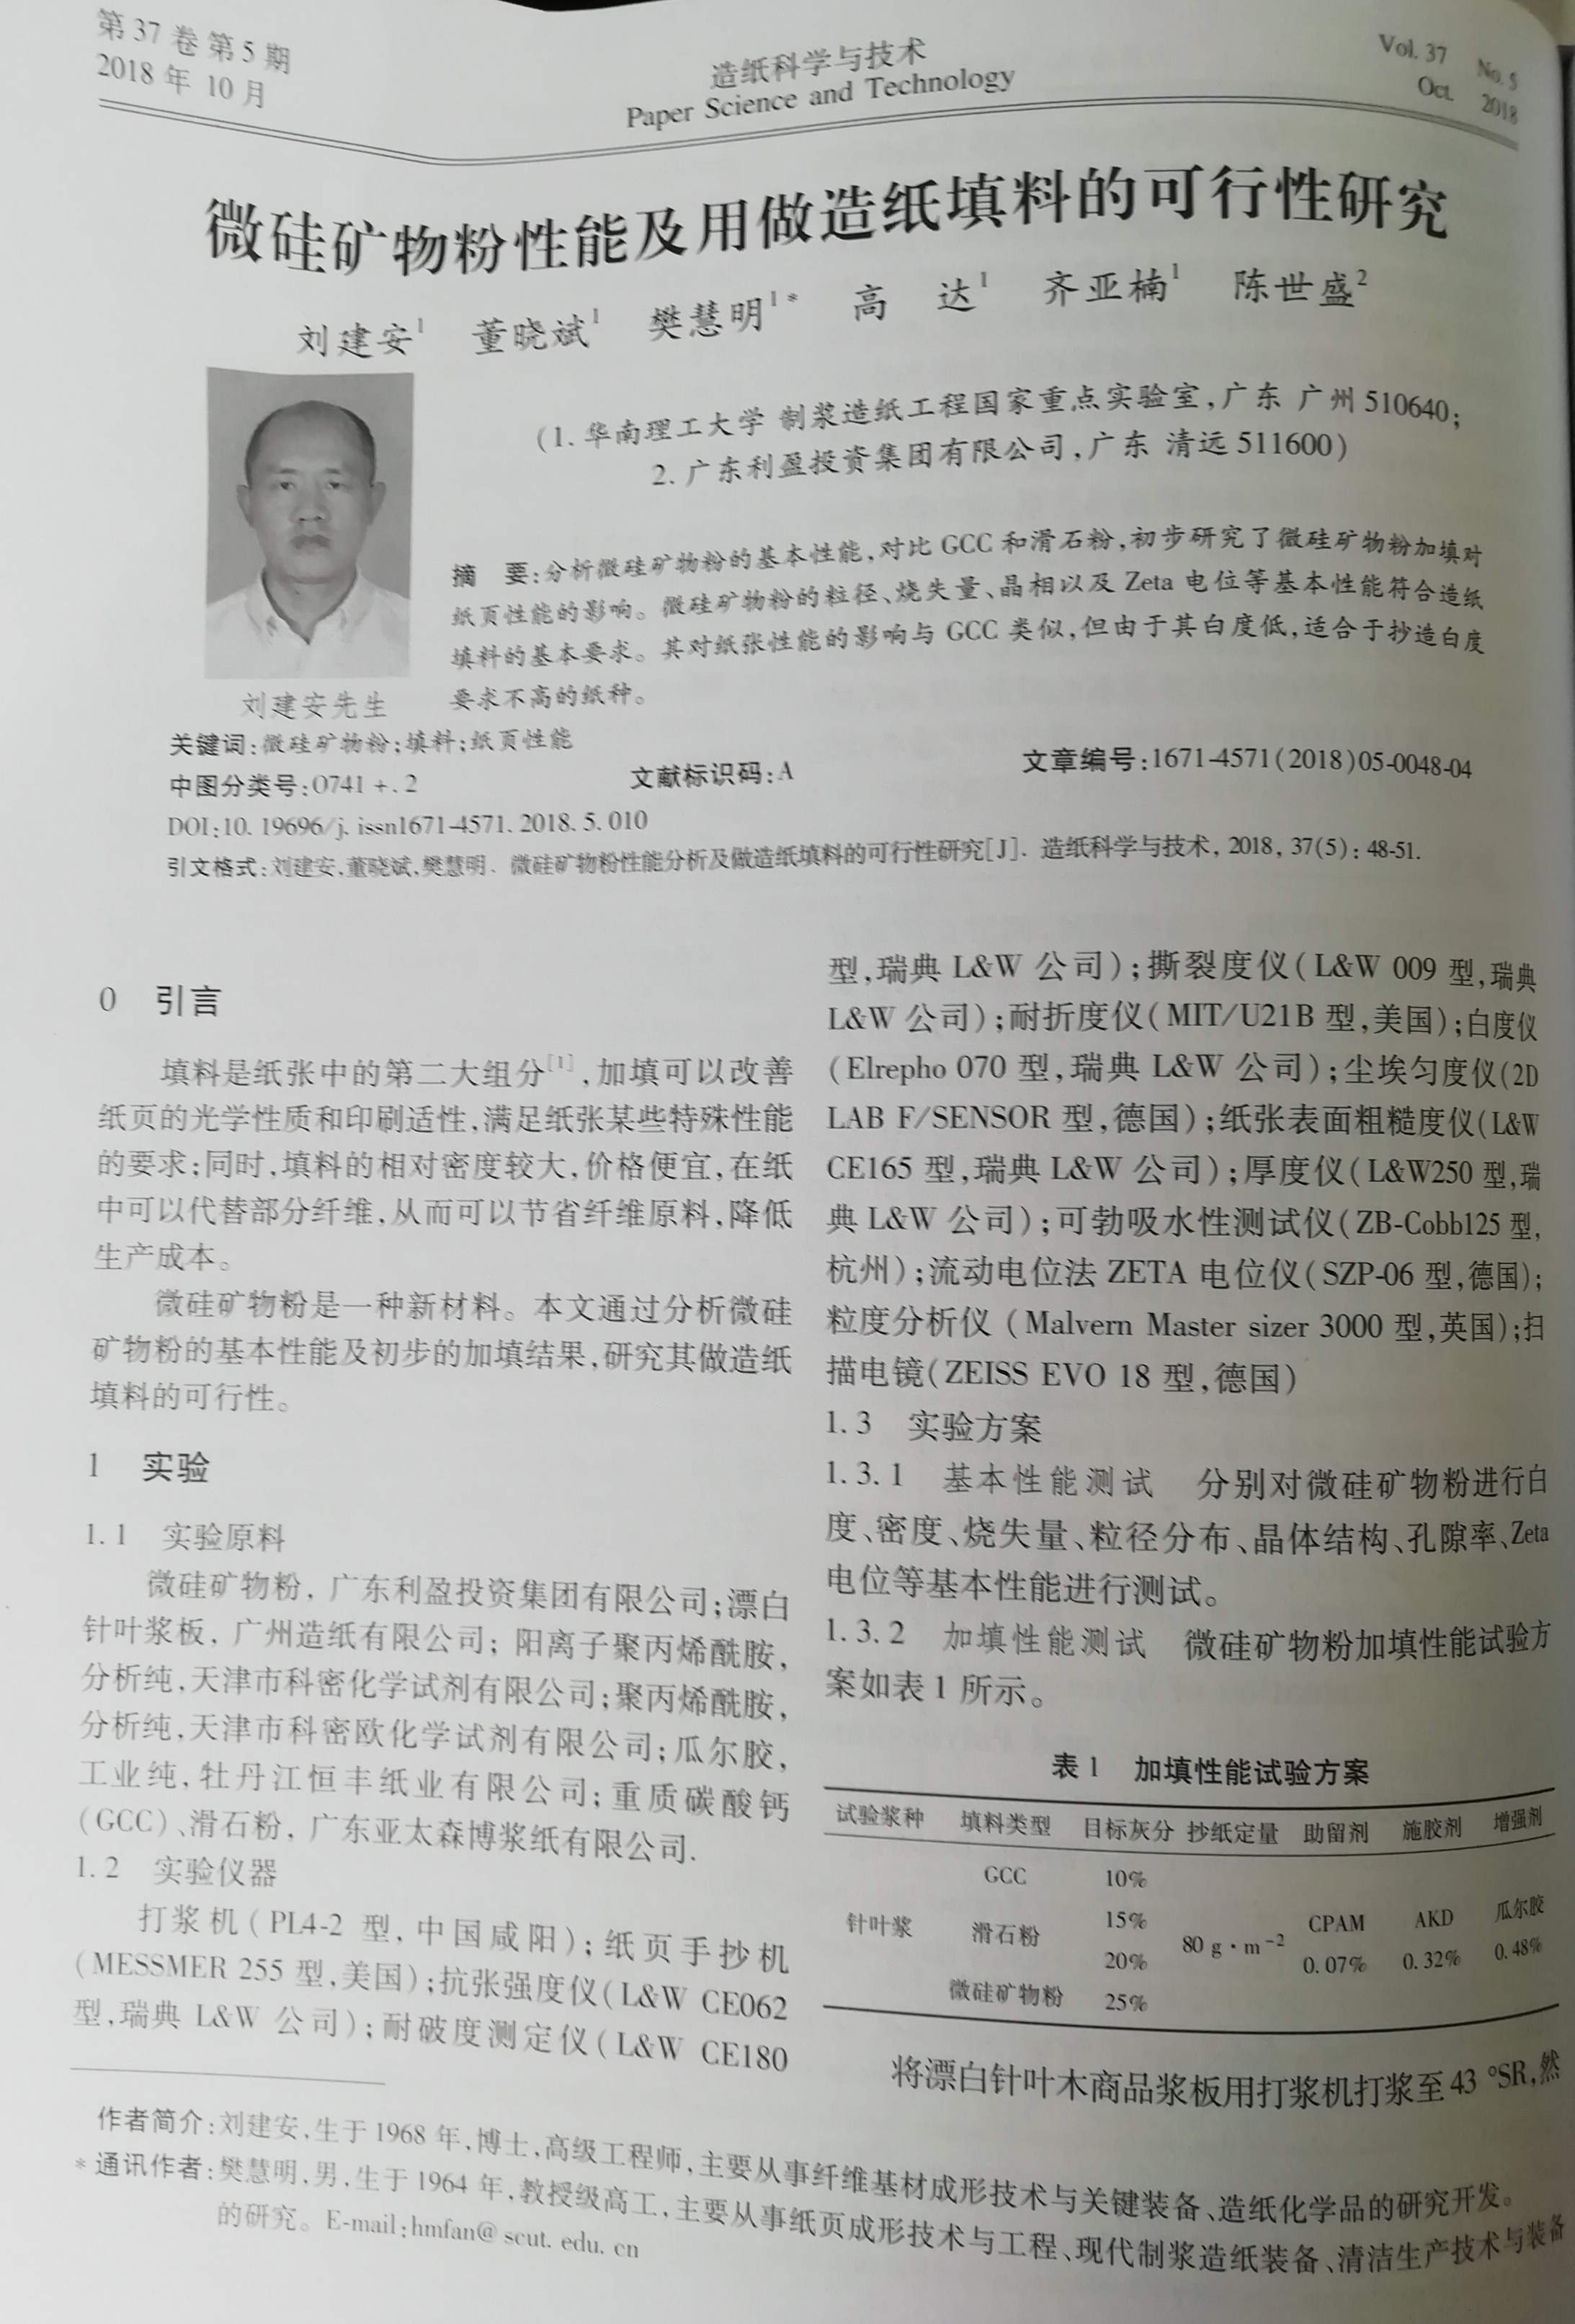 第37卷第5期
2018年10月
造纸科学与技术
Paper Science and Technology
Vol. 37 No. 5
Oct. 2018
微硅矿物粉性能及用做造纸填料的可行性研究
刘建安1 董晓斌1 樊慧明1* 高 达1 齐亚楠1 陈世盛2
(1. 华南理工大学 制浆造纸工程国家重点实验室,广东 广州 510640;
2. 广东利盈投资集团有限公司,广东 清远 511600)
刘建安先生
摘 要:分析微硅矿物粉的基本性能,对比 GCC 和滑石粉,初步研究了微硅矿物粉加填对
纸页性能的影响。微硅矿物粉的粒径、烧失量、晶相以及 Zeta 电位等基本性能符合造纸
填料的基本要求。其对纸张性能的影响与 GCC 类似,但由于其白度低,适合于抄造白度
要求不高的纸种。
关键词:微硅矿物粉;填料;纸页性能
中图分类号:O741 +. 2 文献标识码:A 文章编号:1671-4571(2018)05-0048-04
DOI:10. 19696/j. issn1671-4571. 2018. 5. 010
引文格式:刘建安,董晓斌,樊慧明. 微硅矿物粉性能分析及做造纸填料的可行性研究[J]. 造纸科学与技术, 2018, 37(5): 48-51.
0 引言
填料是纸张中的第二大组分[1],加填可以改善
纸页的光学性质和印刷适性,满足纸张某些特殊性能
的要求;同时,填料的相对密度较大,价格便宜,在纸
中可以代替部分纤维,从而可以节省纤维原料,降低
生产成本。
微硅矿物粉是一种新材料。本文通过分析微硅
矿物粉的基本性能及初步的加填结果,研究其做造纸
填料的可行性。
1 实验
1. 1 实验原料
微硅矿物粉, 广东利盈投资集团有限公司;漂白
针叶浆板, 广州造纸有限公司; 阳离子聚丙烯酰胺,
分析纯,天津市科密化学试剂有限公司;聚丙烯酰胺,
分析纯,天津市科密欧化学试剂有限公司;瓜尔胶,
工业纯,牡丹江恒丰纸业有限公司;重质碳酸钙
(GCC)、滑石粉, 广东亚太森博浆纸有限公司.
1. 2 实验仪器
打浆机(PL4-2 型, 中国咸阳);纸页手抄机
(MESSMER 255 型,美国);抗张强度仪(L&W CE062
型,瑞典 L&W 公司);耐破度测定仪(L&W CE180
型,瑞典 L&W 公司);撕裂度仪(L&W 009 型,瑞典
L&W 公司);耐折度仪(MIT/U21B 型,美国);白度仪
(Elrepho 070 型,瑞典 L&W 公司);尘埃匀度仪(2D
LAB F/SENSOR 型,德国);纸张表面粗糙度仪(L&W
CE165 型,瑞典 L&W 公司);厚度仪(L&W250 型,瑞
典 L&W 公司);可勃吸水性测试仪(ZB-Cobb125 型,
杭州);流动电位法 ZETA 电位仪(SZP-06 型,德国);
粒度分析仪 (Malvern Master sizer 3000 型,英国);扫
描电镜(ZEISS EVO 18 型,德国)
1. 3 实验方案
1. 3. 1 基本性能测试 分别对微硅矿物粉进行白
度、密度、烧失量、粒径分布、晶体结构、孔隙率、Zeta
电位等基本性能进行测试。
1. 3. 2 加填性能测试 微硅矿物粉加填性能试验方
案如表 1 所示。
表 1 加填性能试验方案
试验浆种 填料类型 目标灰分 抄纸定量 助留剂 施胶剂 增强剂
GCC 10%
针叶浆 滑石粉 15% 80 g·m⁻² CPAM AKD 瓜尔胶
20% 0. 07% 0. 32% 0. 48%
微硅矿物粉 25%
将漂白针叶木商品浆板用打浆机打浆至 43 °SR,然
作者简介:刘建安,生于 1968 年,博士,高级工程师,主要从事纤维基材成形技术与关键装备、造纸化学品的研究开发。
* 通讯作者:樊慧明,男,生于 1964 年,教授级高工,主要从事纸页成形技术与工程、现代制浆造纸装备、清洁生产技术与装备
的研究。E-mail:hmfan@ scut. edu. cn